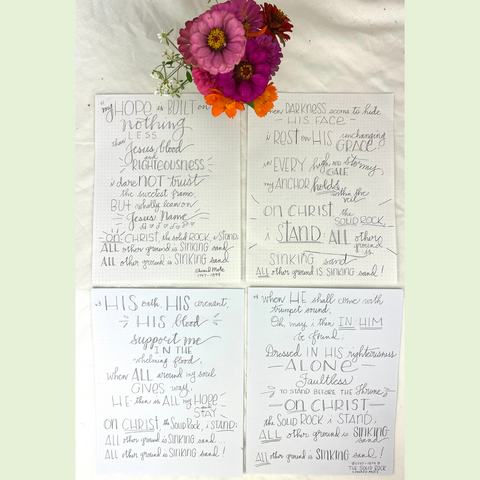 "my HOPE is BUILT on
nothing
LESS
than
Jesus' blood
and
RIGHTEOUSNESS
i dare NOT trust
the sweetest frame
BUT wholly lean on
Jesus' Name
ON CHRIST the solid ROCK, i stand:
ALL other ground is SINKING sand
ALL other ground is SINKING sand
Edward Mote
1797-1874
when DARKNESS seems to hide
HIS FACE
i REST on HIS unchanging
GRACE
in EVERY high and stormy
GALE
my ANCHOR holds
within the
veil
ON CHRIST the
SOLID ROCK
i STAND: ALL other
ground
is
SINKING sand
ALL other ground is SINKING sand!
HIS oath, HIS covenant,
HIS blood
support me
IN THE
whelming flood.
when ALL around my soul
GIVES way,
HE then is ALL my Hope
and
STAY
ON CHRIST the Solid ROCK, i STAND:
ALL other ground is SINKING sand...
ALL other ground is SINKING sand!
when HE shall come with
trumpet sound,
Oh may i then IN HIM
be found.
Dressed IN HIS righteousness
ALONE
Faultless
TO STAND BEFORE the Throne
ON CHRIST
the SOLID ROCK i STAND,
ALL other ground is SINKING
sand
ALL other ground is SINKING sand!
THE SOLID ROCK
EDWARD MOTE